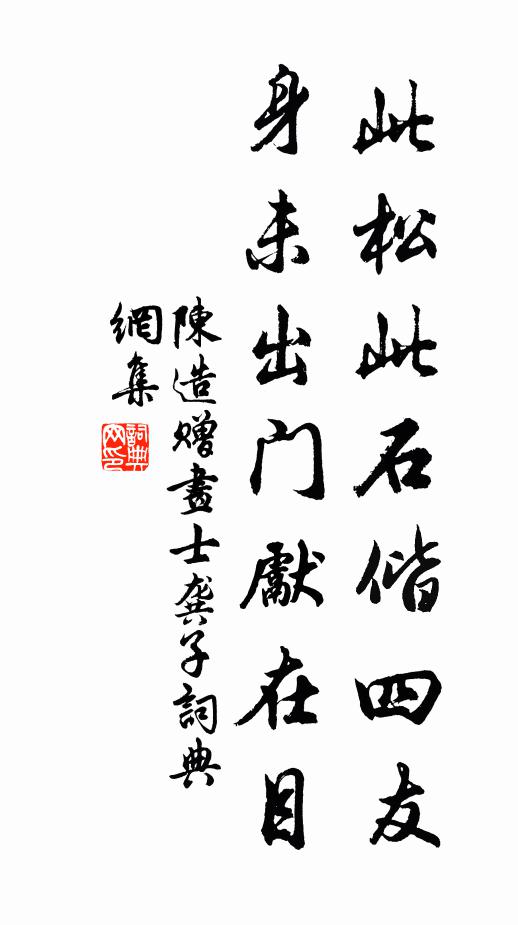 此松此石偕四友
身未出門獻在目
陳造贈畫士龔子詞典
網集
詞典
网印